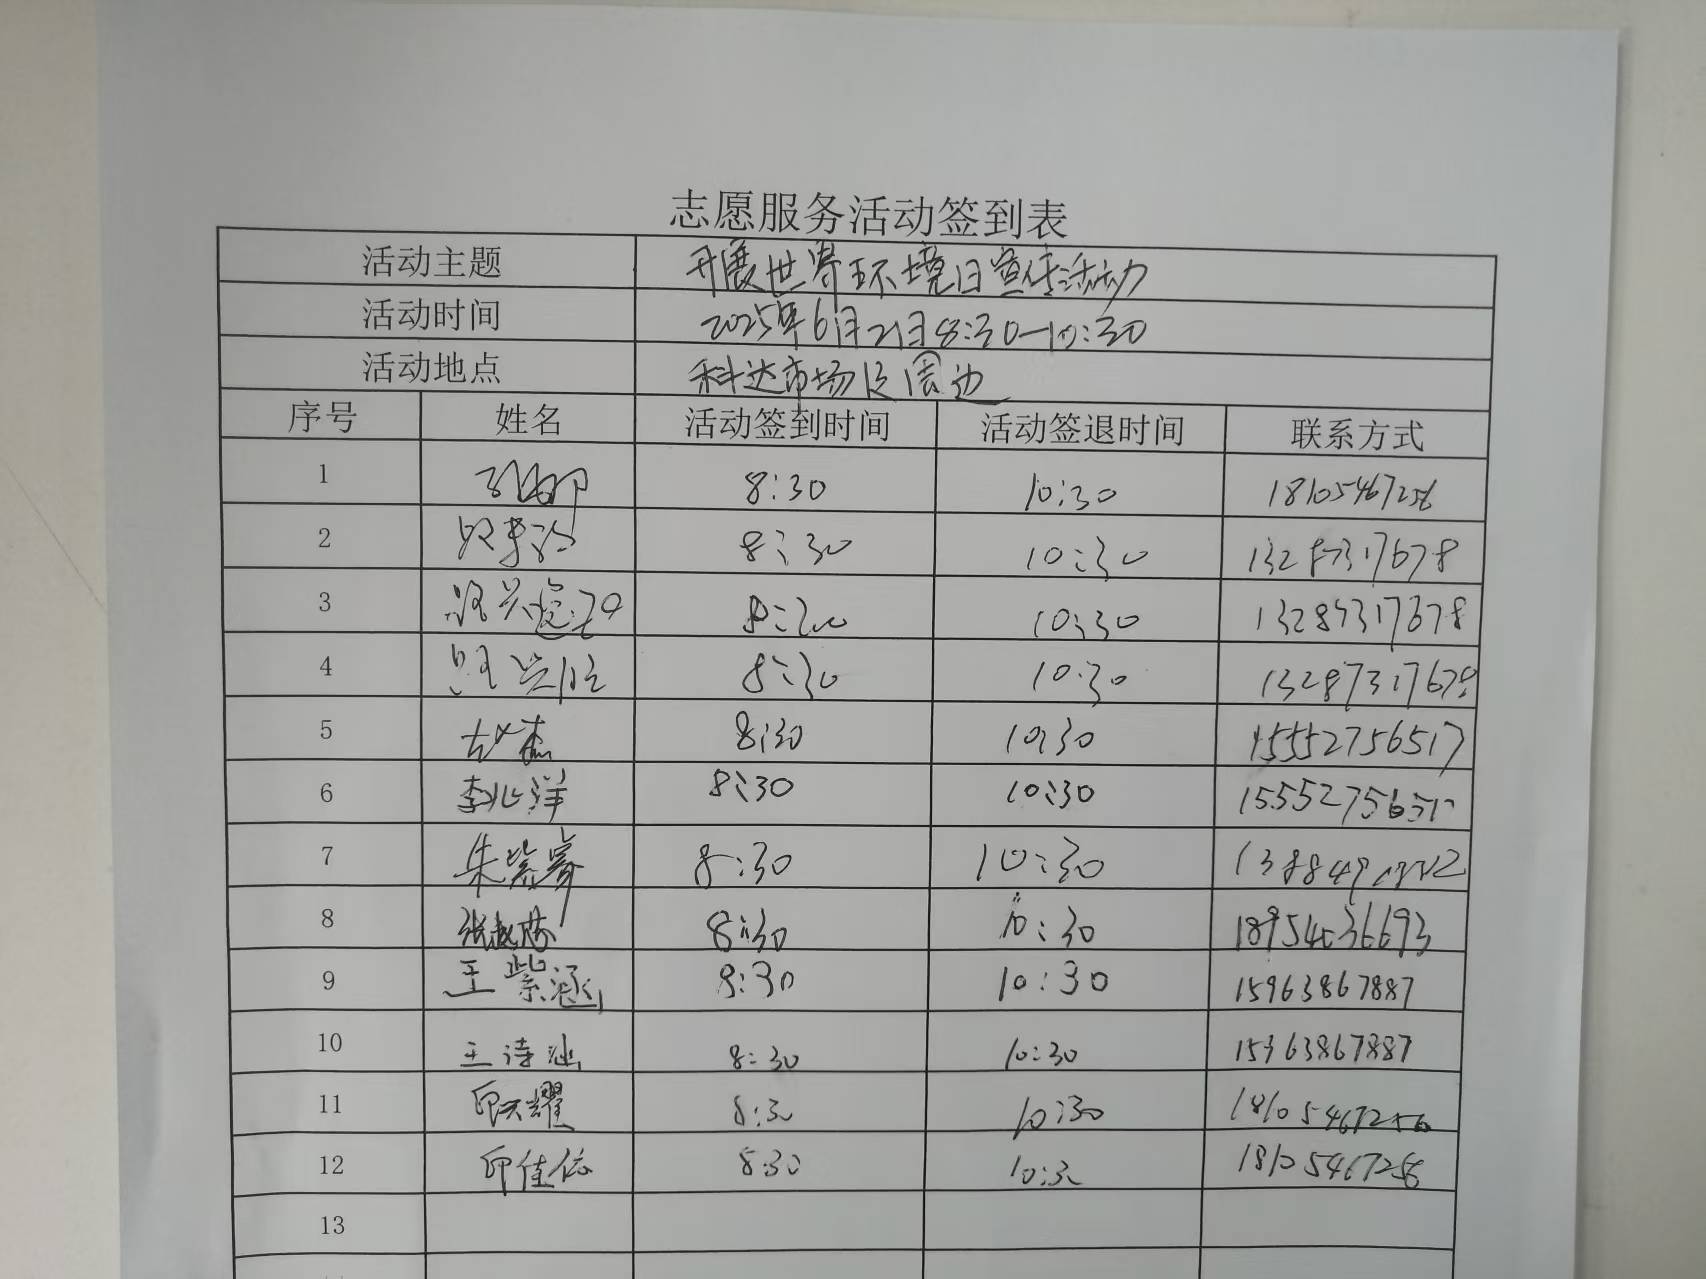 志愿服务活动签到表
活动主题 开展世界环境日宣传活动
活动时间 2025年6月21日8:30-10:30
活动地点 科达市场及周边
序号 姓名 活动签到时间 活动签退时间 联系方式
1 8:30 10:30 18105467256
2 8:30 10:30 13287317678
3 10:30 13287317678
4 8:30 10:30 13287317678
5 赵杰 8:30 10:30 15552756517
6 李兆洋 8:30 10:30 15552756517
7 朱紫睿 8:30 10:30
8 8:30 10:30 18954036693
9 王紫涵 8:30 10:30 15963867887
10 王诗涵 8:30 10:30 15963867887
11 8:30 10:30 18105467256
12 邱佳依 8:30 10:30 18105467256
13